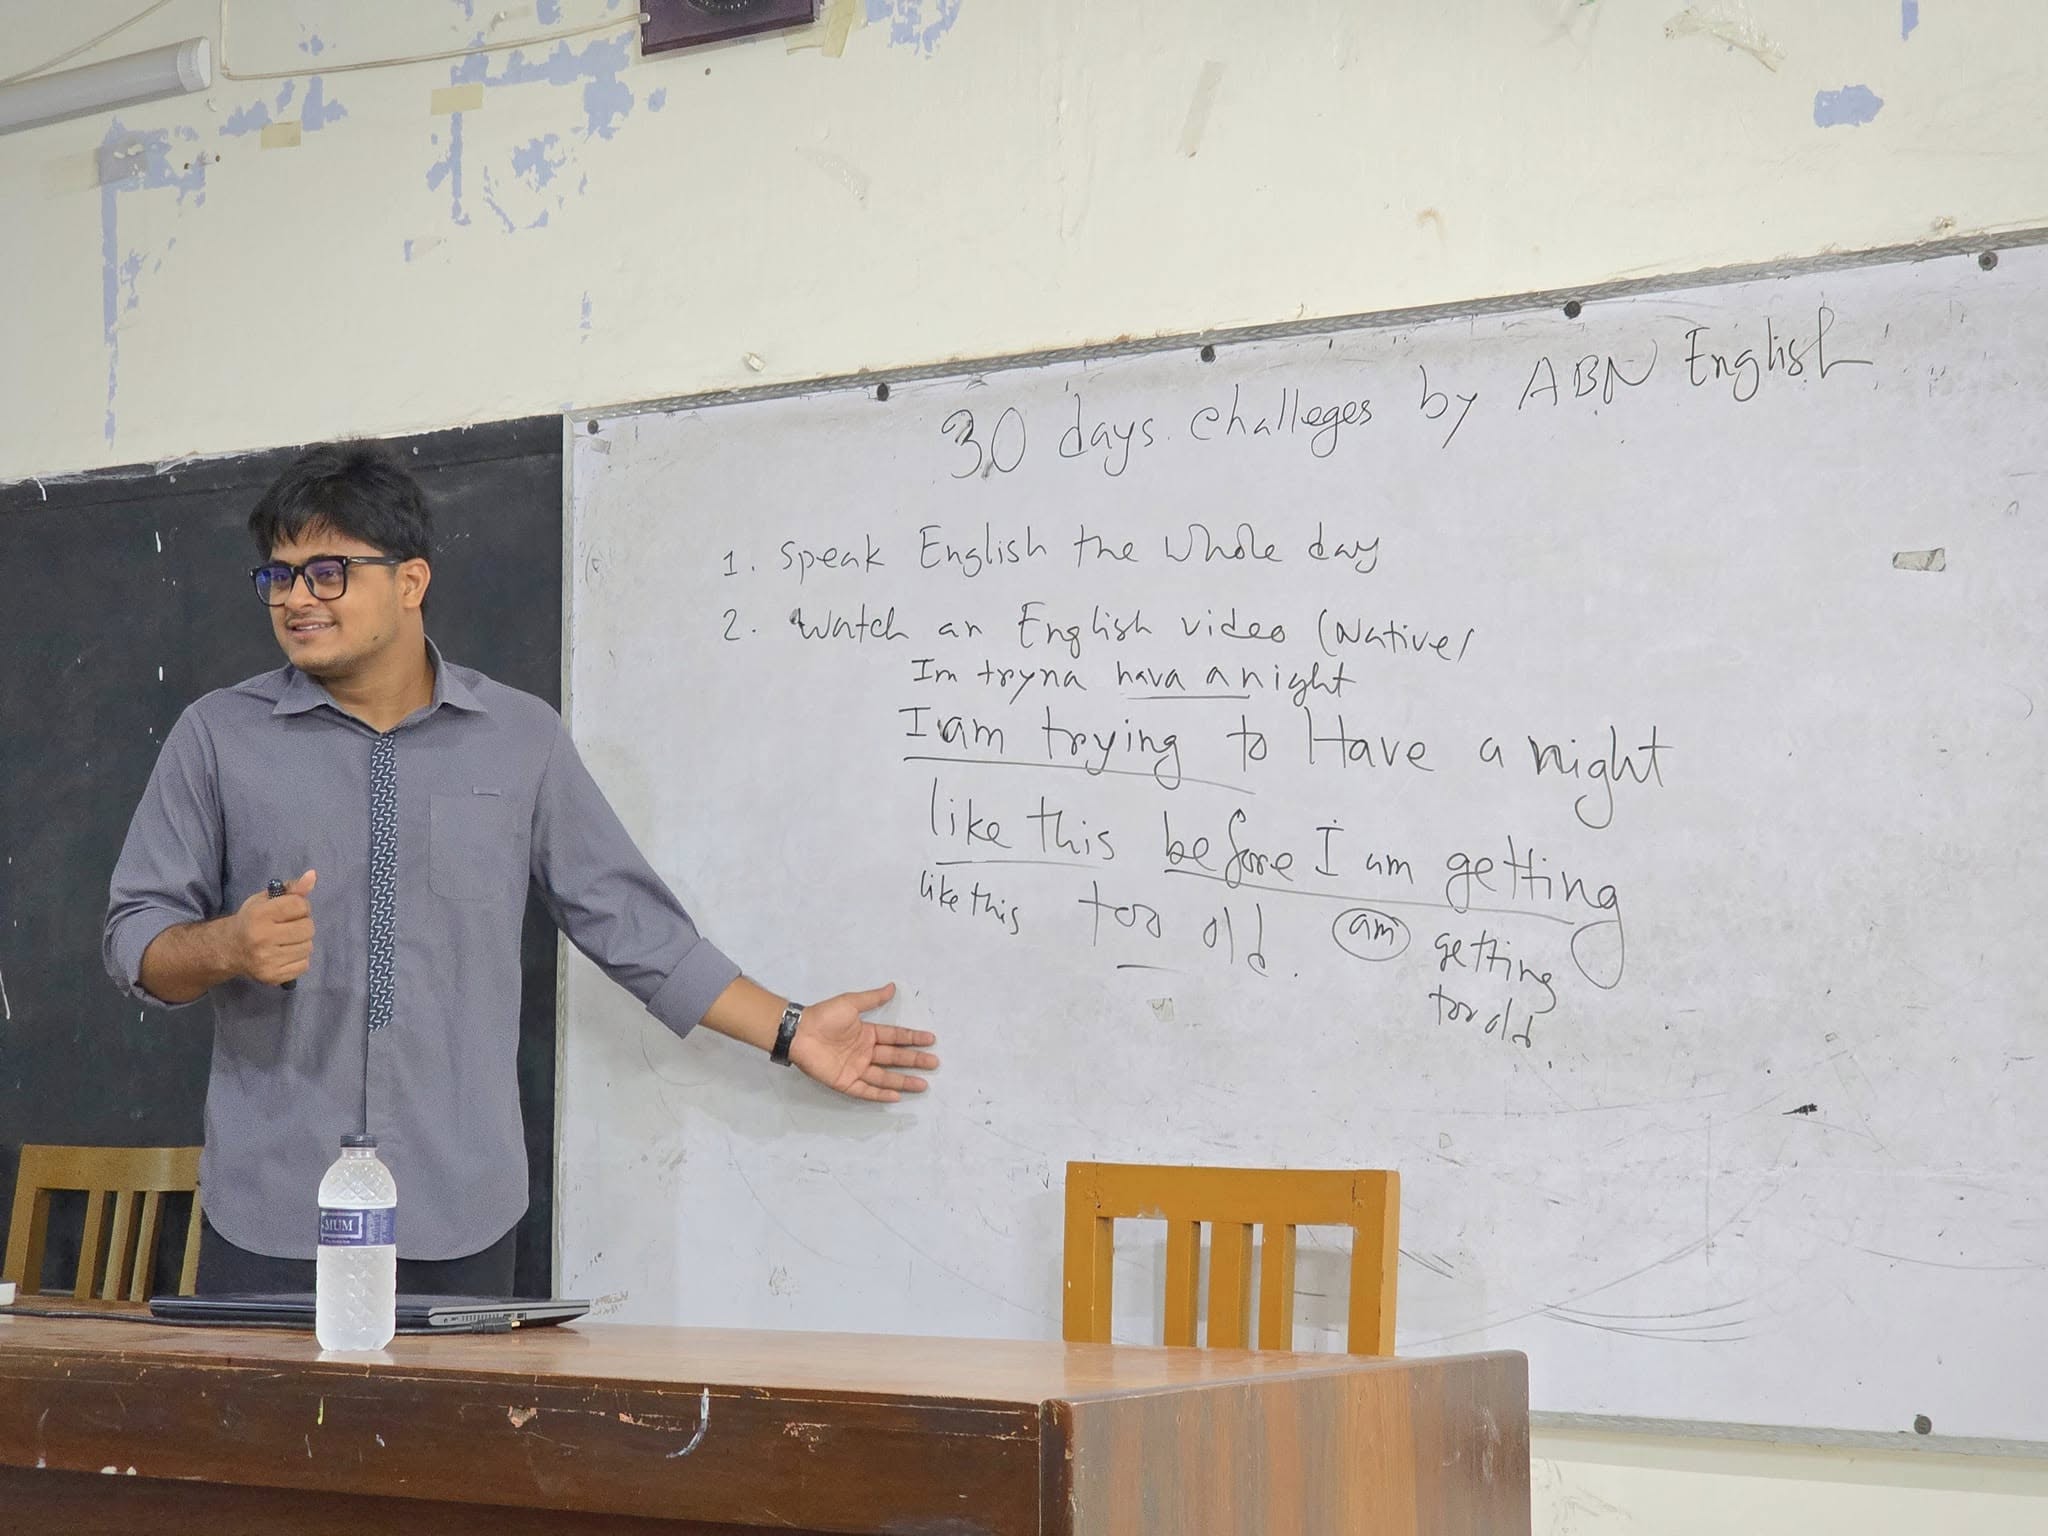 30 days challeges by ABN English
1. Speak English the whole day
2. Watch an English video (Native/
Im tryna hava a night
I am trying to Have a night
like this before I am getting
like this too old. am getting
too old.
MUM